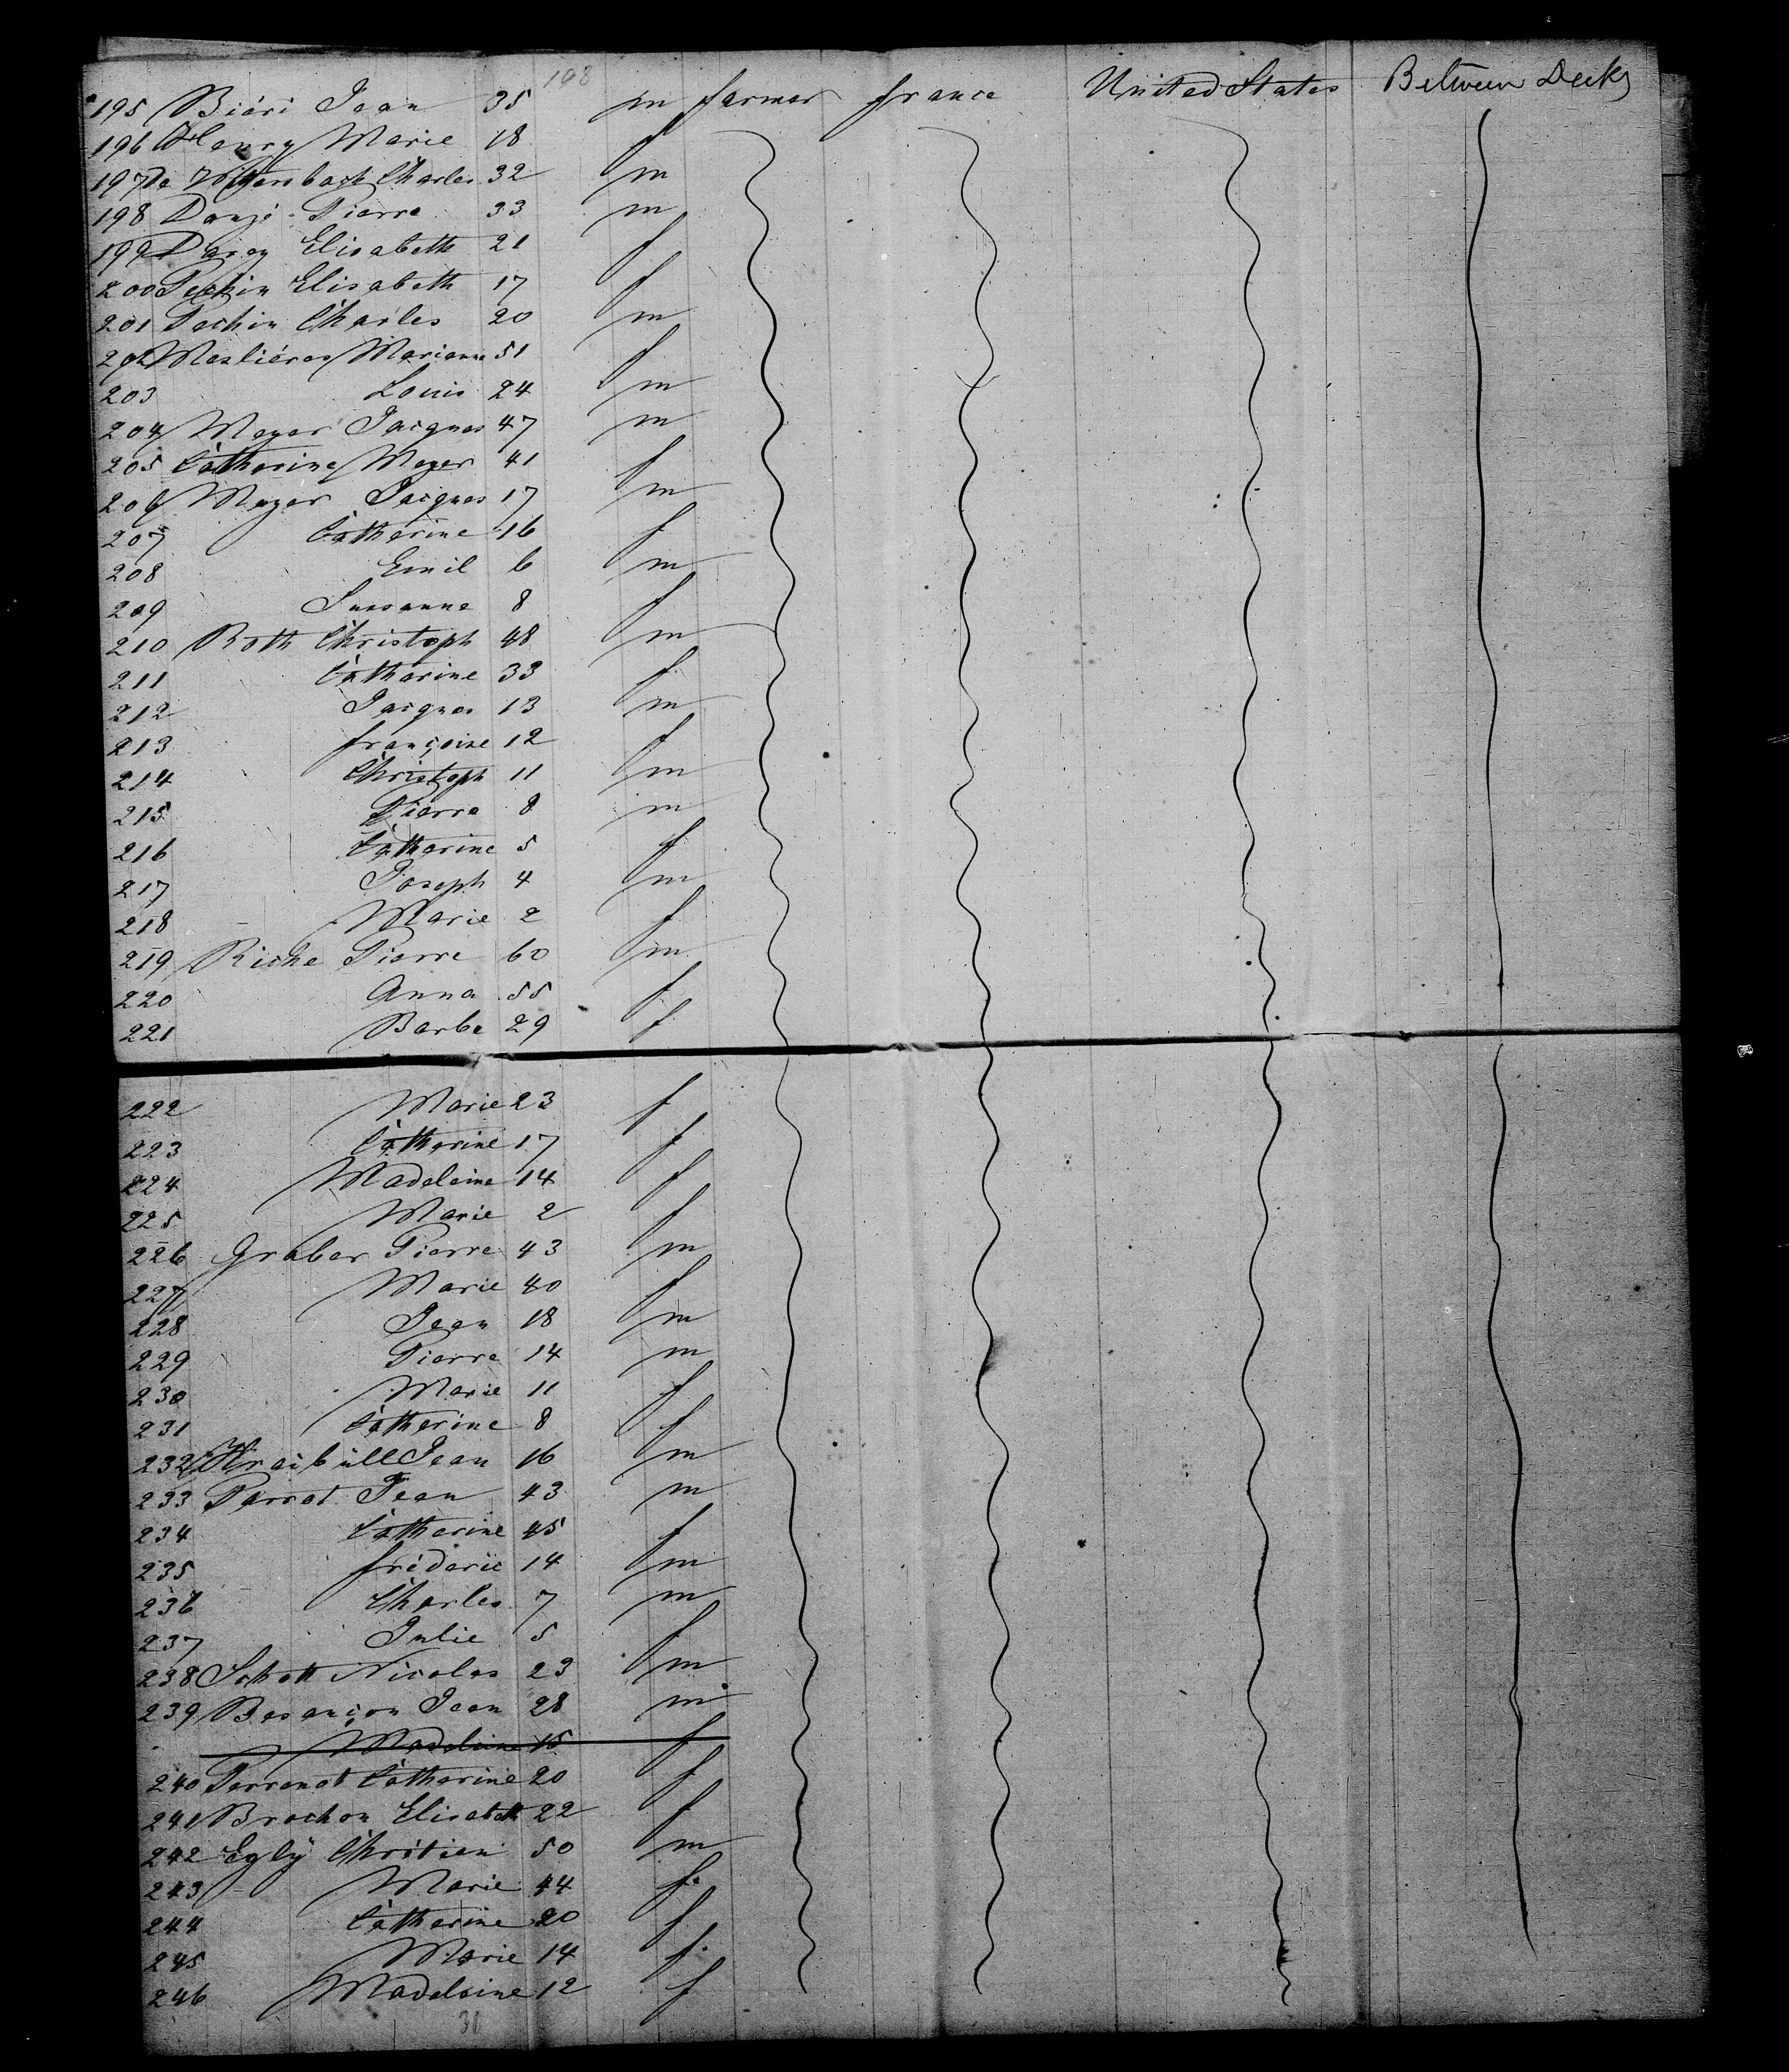 198
195 Biéri Jean 35 m farmer france United States Between Decks
196 Henry Marie 18 f
197 De Charles 32 m
198 Pierre 33 m
199 Elisabeth 21 f
200 Pechin Elisabeth 17 f
201 Pechin Charles 20 m
202 Mesliéres Marianne 51 f
203 Louis 24 m
204 Meyer Jacques 47 m
205 Catherine Meyer 41 f
206 Meyer Jacques 17 m
207 Catherine 16 f
208 Emil 6 m
209 Susanne 8 f
210 Roth Christoph 48 m
211 Catharine 33 f
212 Jacques 13 m
213 françoise 12 f
214 Christoph 11 m
215 Pierre 8 m
216 Catharine 5 f
217 Joseph 4 m
218 Marie 2 f
219 Riche Pierre 60 m
220 Anna 55 f
221 Barbe 29 f
222 Marie 23 f
223 Catherine 17 f
224 Madeleine 14 f
225 Marie 2 f
226 Graber Pierre 43 m
227 Marie 40 f
228 Jean 18 m
229 Pierre 14 m
230 Marie 11 f
231 Catherine 8 f
232 Jean 16 m
233 Parrot Jean 43 m
234 Catherine 45 f
235 fréderic 14 m
236 Charles 7 m
237 Julie 5 f
238 Schott Nicolas 23 m
239 Besançon Jean 28 m
Madeleine 15 f
240 Perrenot Catharine 20 f
241 Brochon Elisabeth 22 f
242 Egly Chrétien 50 m
243 Marie 44 f
244 Catherine 20 f
245 Marie 14 f
246 Madeleine 12 f